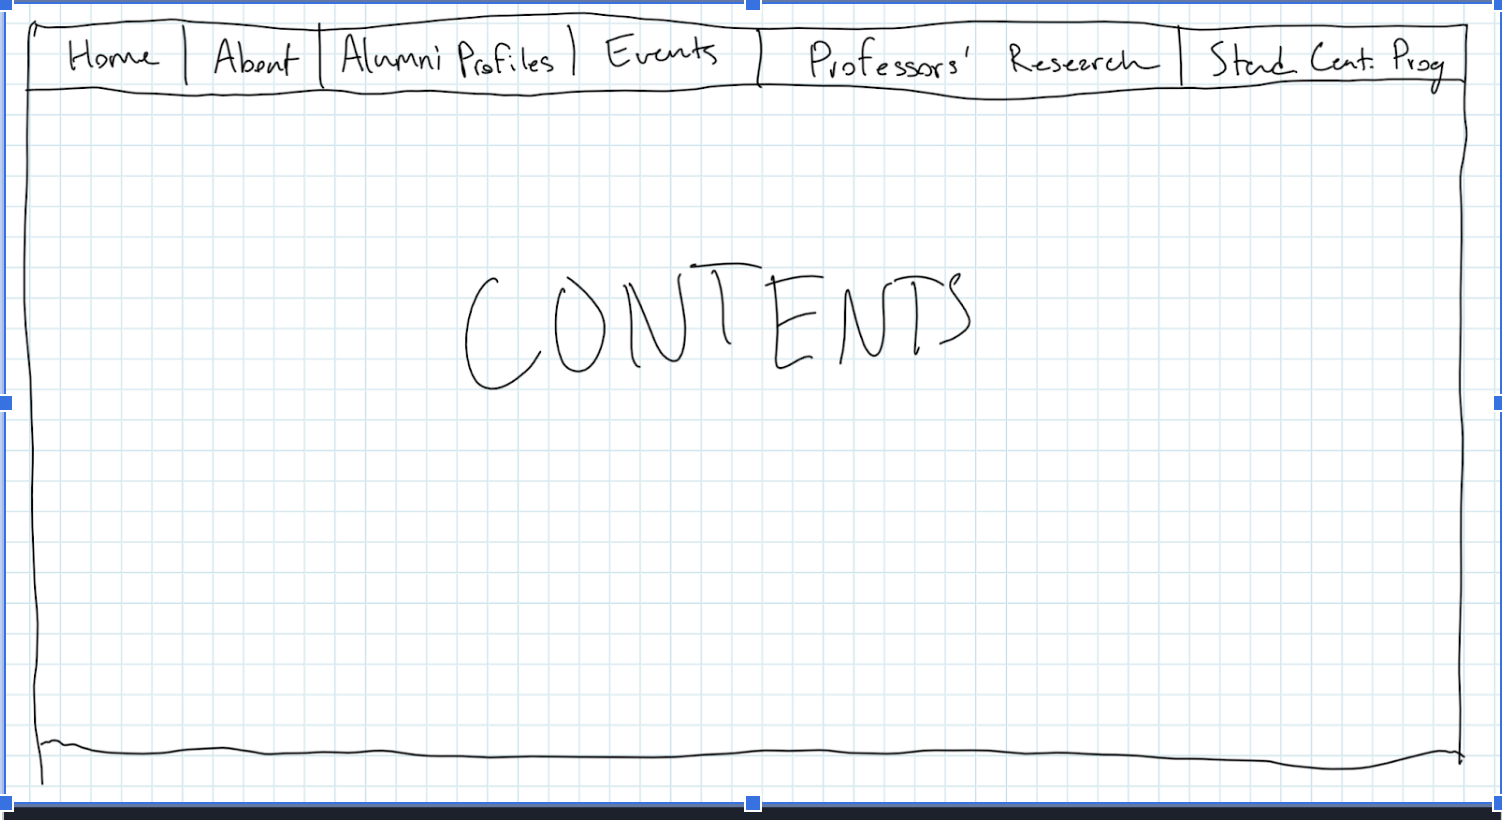 Home About Alumni Profiles Events Professors' Research Stud. Cent. Prog
CONTENTS